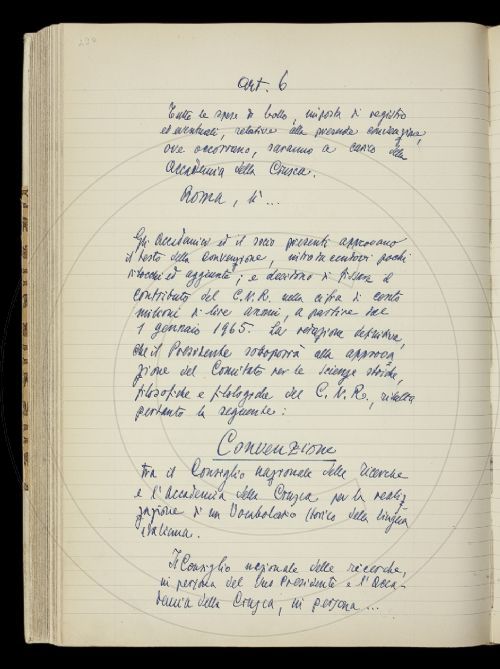 art. 6
Tutte le spese di bollo, imposta di registro
ed eventuali, relative alla presente convenzione,
ove occorrano, saranno a carico della
Accademia della Crusca.
Roma, lì ...
Gli Accademici ed il socio presenti approvano
il testo della Convenzione, introducendovi pochi
ritocchi ed aggiunte; e decidono di fissare il
contributo del C.N.R. nella cifra di cento
milioni di lire annui, a partire dal
1 gennaio 1965. La redazione definitiva,
che il Presidente sottoporrà alla approva
zione del Comitato per le scienze storiche,
filosofiche e filologiche del C.N.R., risulta
pertanto la seguente:
Convenzione
tra il Consiglio nazionale delle ricerche
e l'Accademia della Crusca per la realiz
zazione di un Vocabolario storico della lingua
italiana.
Il Consiglio nazionale delle ricerche,
in persona del suo Presidente e l'Acca-
demia della Crusca, in persona ...